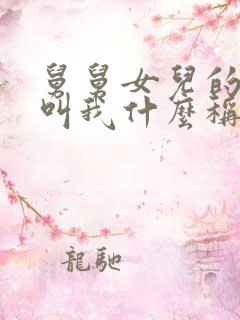 舅舅女兒的
叫我什麼稱
龍馳